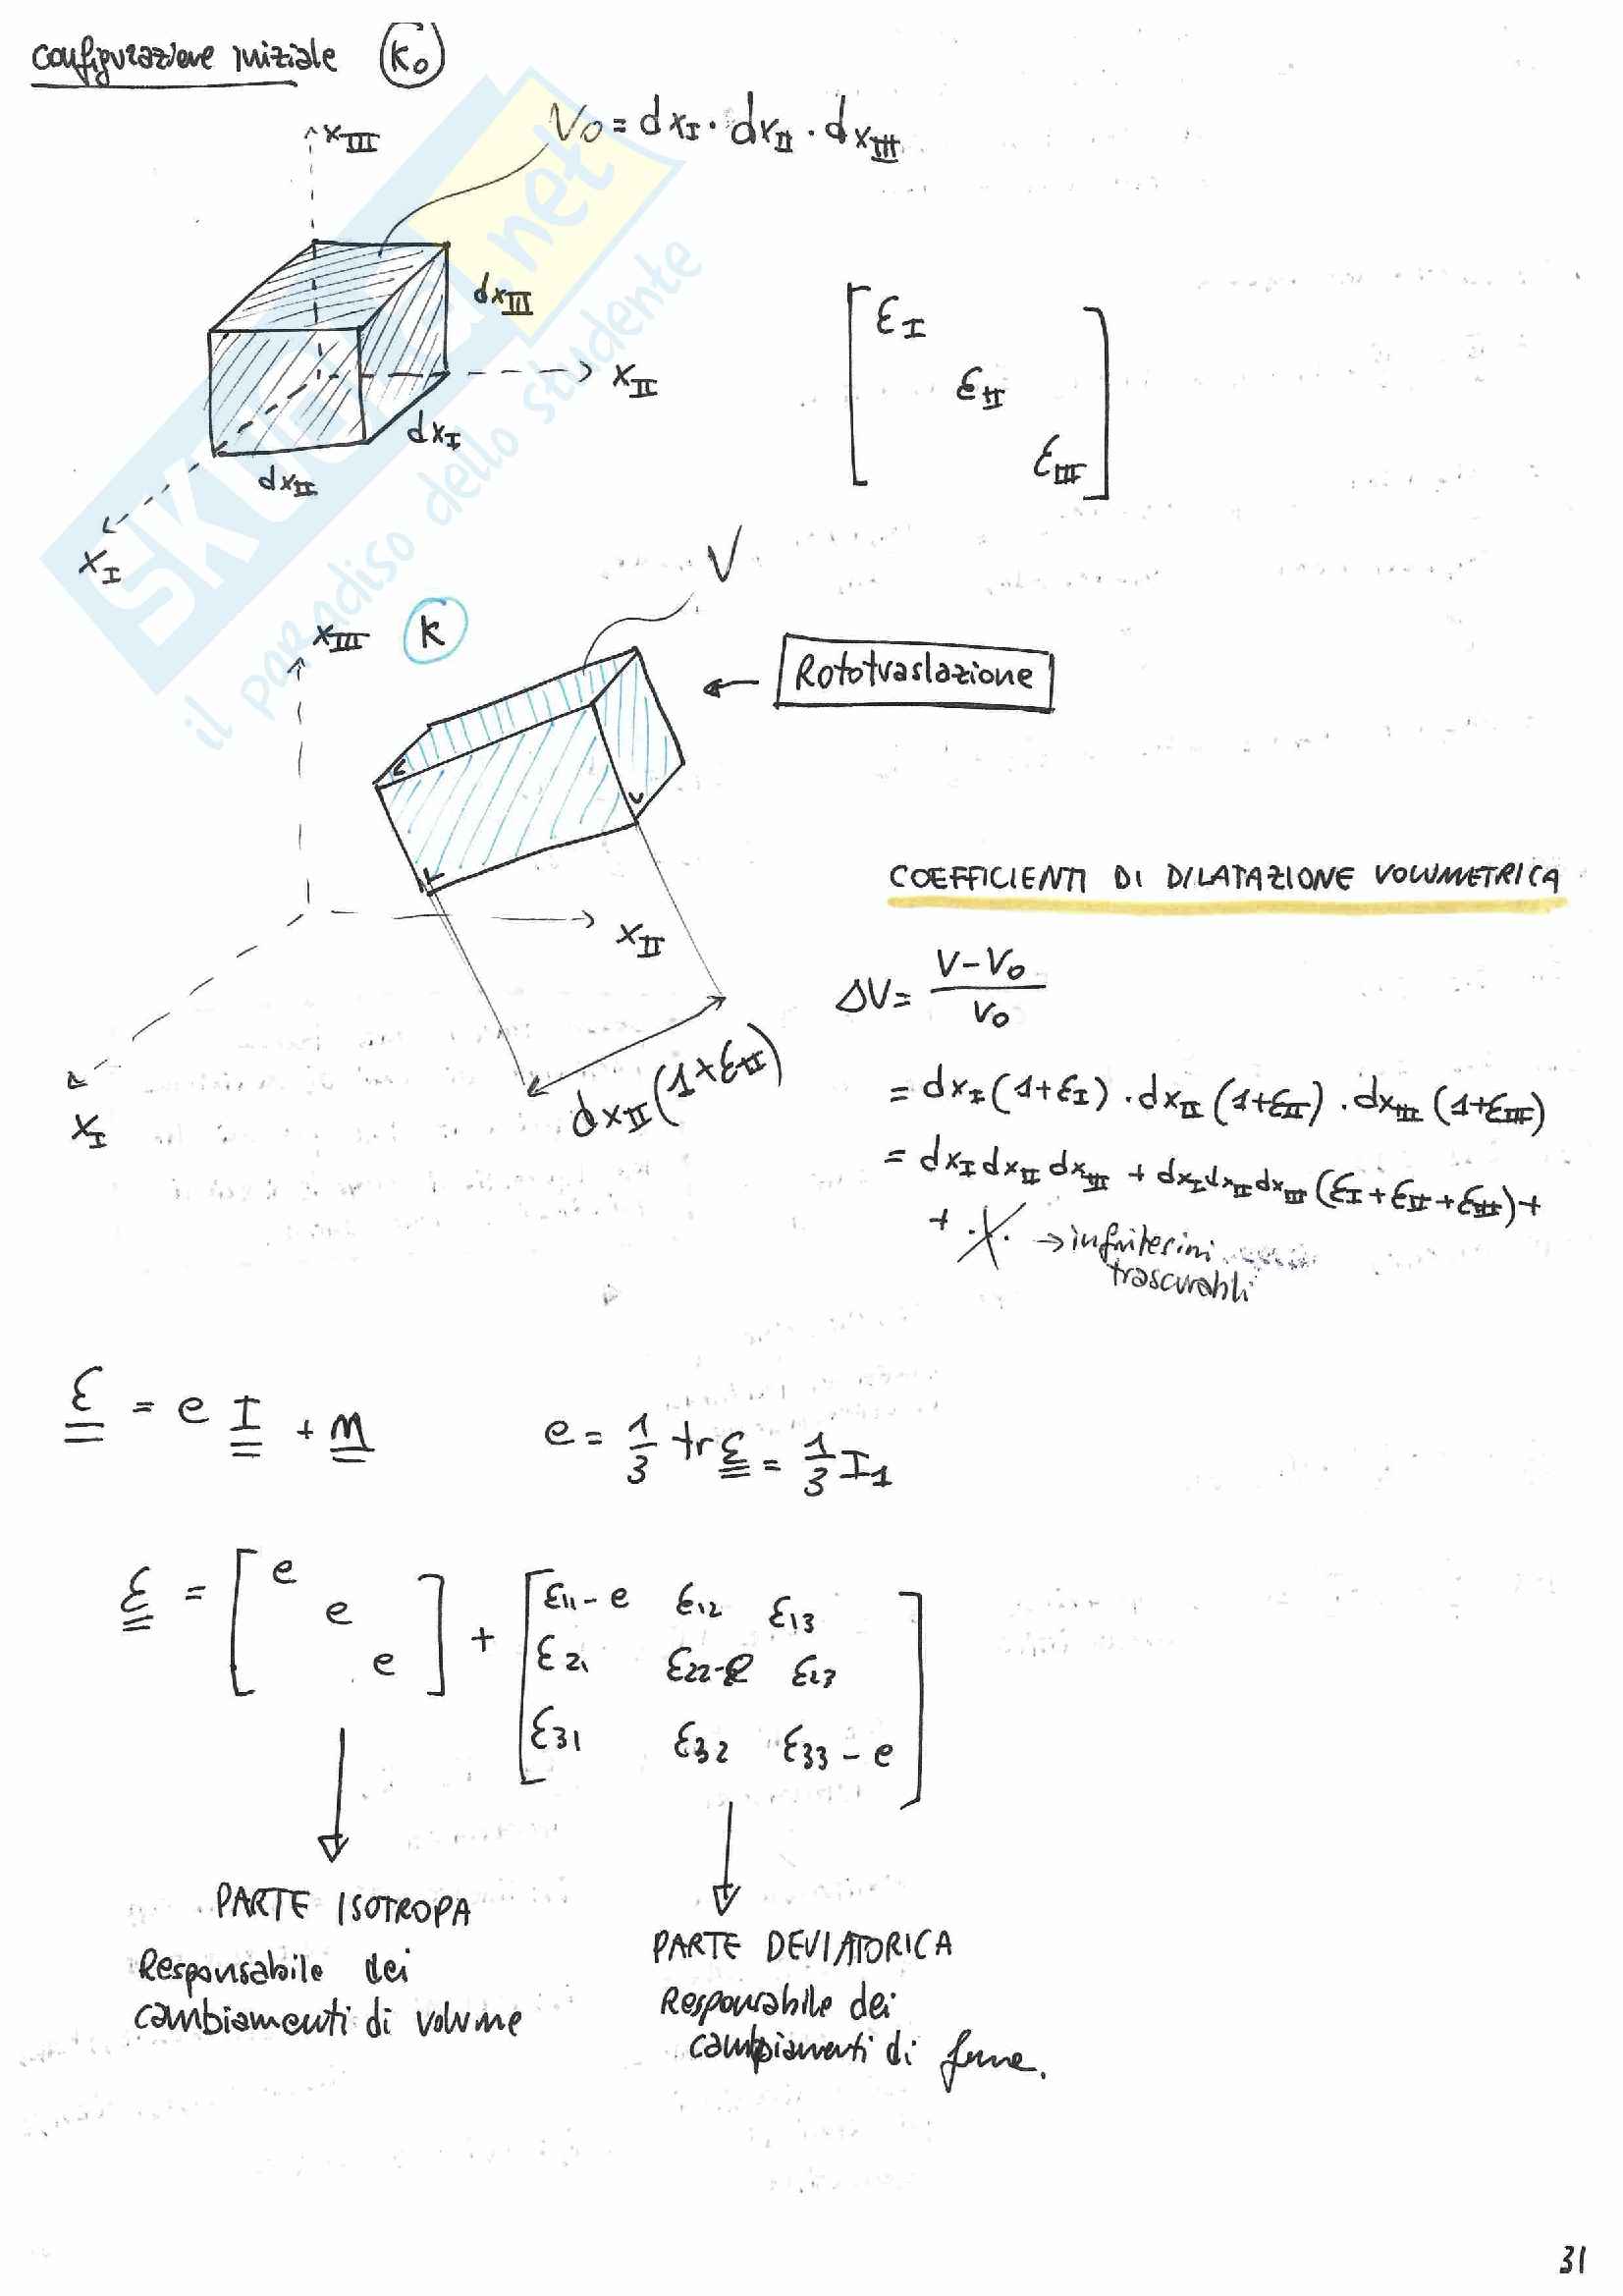 configurazione iniziale K₀
x_III
V₀ = dx_I · dx_II · dx_III
dx_III
x_II
dx_I
dx_II
x_I
[ε_I
ε_II
ε_III]
SKUOLA.net
il paradiso dello studente
V
x_III K
← Rototraslazione
x_II
dx_II (1×ε_II)
x_I
COEFFICIENTI DI DILATAZIONE VOLUMETRICA
ΔV = (V-V₀)/V₀
= dx_I (1+ε_I) · dx_II (1+ε_II) · dx_III (1+ε_III)
= dx_I dx_II dx_III + dx_I dx_II dx_III (ε_I + ε_II + ε_III) +
+ ... → infinitesimi
trascurabili
ε = e I + M e = 1/3 tr ε = 1/3 I₁
ε = [e
e
e] + [ε₁₁-e ε₁₂ ε₁₃
ε₂₁ ε₂₂-e ε₂₃
ε₃₁ ε₃₂ ε₃₃-e]
PARTE ISOTROPA
Responsabile dei
cambiamenti di volume
PARTE DEVIATORICA
Responsabile dei
cambiamenti di forma.
31